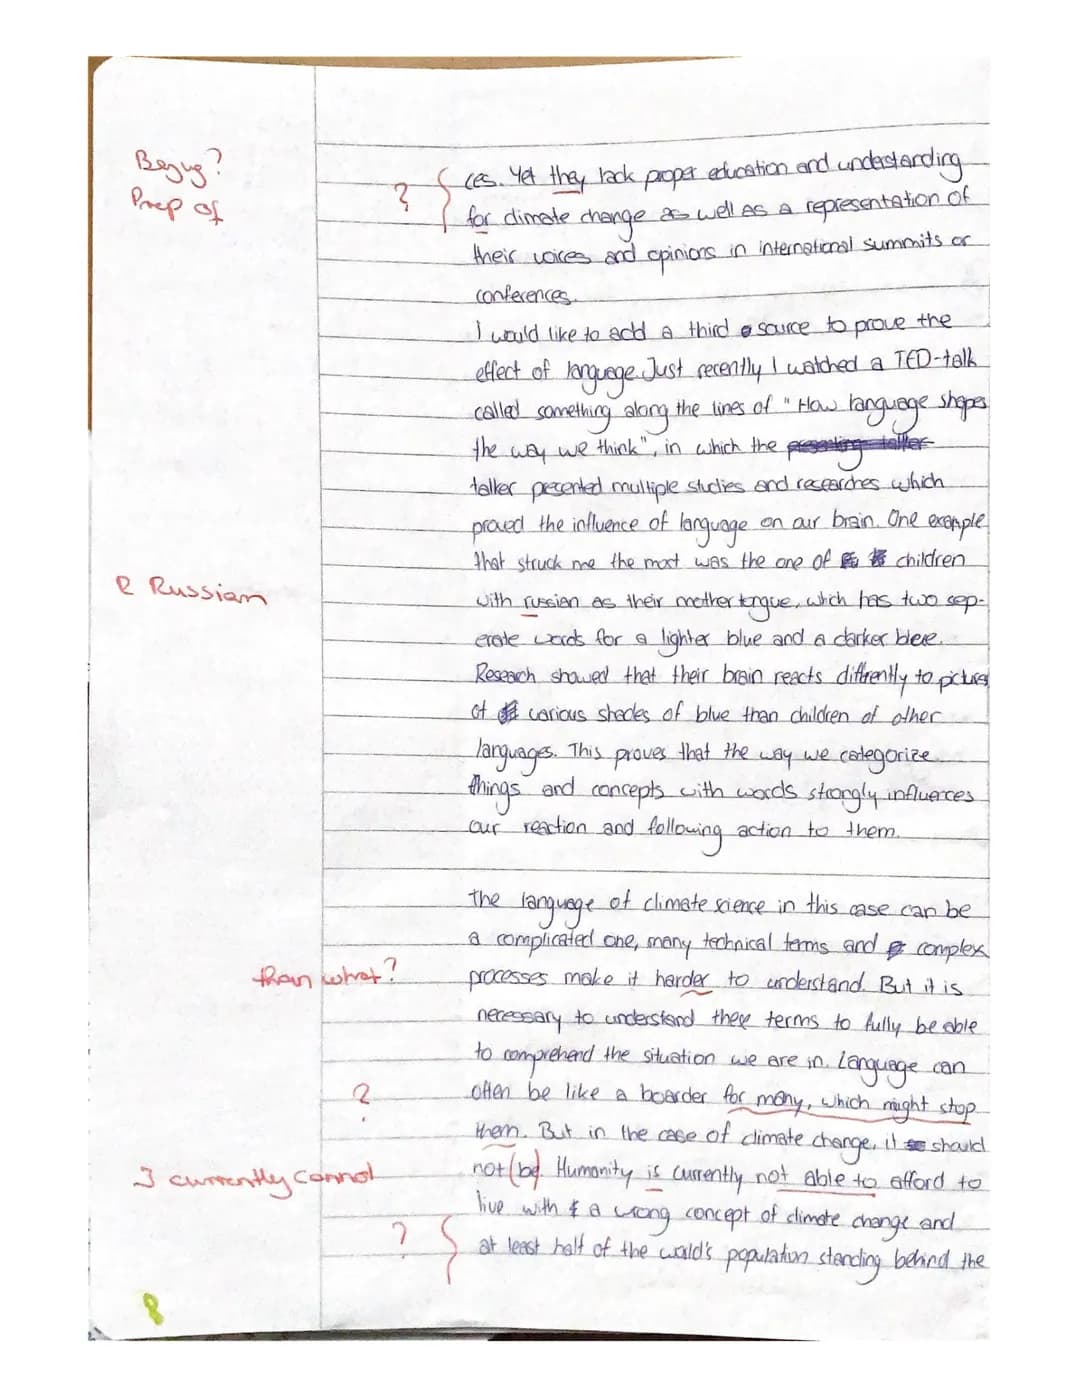 Bezug?
Prep of
?
ces. Yet they lack proper education and understanding
for climate change as well as a representation of
their voices and opinions in international summits or
conferences.
I would like to add a third source to prove the
effect of language. Just recently I watched a TED-talk
called something along the lines of "How language shapes
the way we think", in which the presenting talker
talker presented multiple studies and researches which
proved the influence of language on our brain. One example
that struck me the most was the one of children
R Russian
with russian as their mother tongue, which has two sep-
erate words for a lighter blue and a darker blue.
Research showed that their brain reacts diffrently to pictures
of various shades of blue than children of other
languages. This proves that the way we categorize
things and concepts with words strongly influences
our reaction and following action to them.
the language of climate science in this case can be
a complicated one, many technical terms and complex
than what?
processes make it harder to understand. But it is
necessary to understand these terms to fully be able
to comprehend the situation we are in. Language can
?
often be like a boarder for many, which might stop
them. But in the case of climate change, it should
currently cannot
not (be). Humanity is currently not able to afford to
live with a wrong concept of climate change and
?
at least half of the world's population standing behind the
8